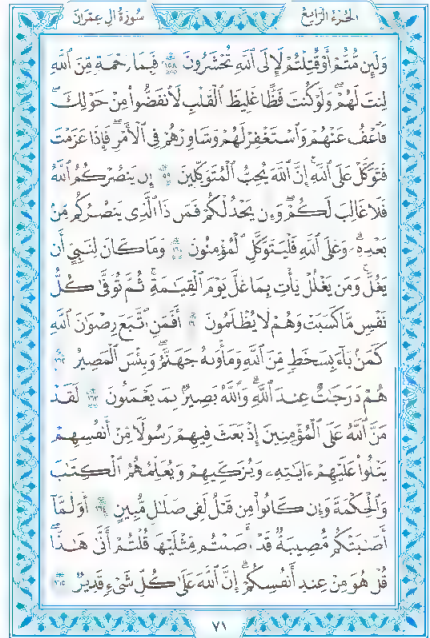 الجزء الرابع
سورة آل عمران
وَلَئِن مُّتُّمْ أَوْ قُتِلْتُمْ لَإِلَى ٱللَّهِ تُحْشَرُونَ ١٥٨ فَبِمَا رَحْمَةٍ مِّنَ ٱللَّهِ
لِنتَ لَهُمْ وَلَوْ كُنتَ فَظًّا غَلِيظَ ٱلْقَلْبِ لَٱنفَضُّوا۟ مِنْ حَوْلِكَ
فَٱعْفُ عَنْهُمْ وَٱسْتَغْفِرْ لَهُمْ وَشَاوِرْهُمْ فِى ٱلْأَمْرِ فَإِذَا عَزَمْتَ
فَتَوَكَّلْ عَلَى ٱللَّهِ إِنَّ ٱللَّهَ يُحِبُّ ٱلْمُتَوَكِّلِينَ ١٥٩ إِن يَنصُرْكُمُ ٱللَّهُ
فَلَا غَالِبَ لَكُمْ وَإِن يَخْذُلْكُمْ فَمَن ذَا ٱلَّذِى يَنصُرُكُم مِّنۢ
بَعْدِهِۦ وَعَلَى ٱللَّهِ فَلْيَتَوَكَّلِ ٱلْمُؤْمِنُونَ ١٦٠ وَمَا كَانَ لِنَبِىٍّ أَن
يَغُلَّ وَمَن يَغْلُلْ يَأْتِ بِمَا غَلَّ يَوْمَ ٱلْقِيَـٰمَةِ ثُمَّ تُوَفَّىٰ كُلُّ
نَفْسٍ مَّا كَسَبَتْ وَهُمْ لَا يُظْلَمُونَ ١٦١ أَفَمَنِ ٱتَّبَعَ رِضْوَٰنَ ٱللَّهِ
كَمَنۢ بَآءَ بِسَخَطٍ مِّنَ ٱللَّهِ وَمَأْوَىٰهُ جَهَنَّمُ وَبِئْسَ ٱلْمَصِيرُ ١٦٢
هُمْ دَرَجَـٰتٌ عِندَ ٱللَّهِ وَٱللَّهُ بَصِيرٌۢ بِمَا يَعْمَلُونَ ١٦٣ لَقَدْ
مَنَّ ٱللَّهُ عَلَى ٱلْمُؤْمِنِينَ إِذْ بَعَثَ فِيهِمْ رَسُولًا مِّنْ أَنفُسِهِمْ
يَتْلُوا۟ عَلَيْهِمْ ءَايَـٰتِهِۦ وَيُزَكِّيهِمْ وَيُعَلِّمُهُمُ ٱلْكِتَـٰبَ
وَٱلْحِكْمَةَ وَإِن كَانُوا۟ مِن قَبْلُ لَفِى ضَلَـٰلٍ مُّبِينٍ ١٦٤ أَوَلَمَّآ
أَصَـٰبَتْكُم مُّصِيبَةٌ قَدْ أَصَبْتُم مِّثْلَيْهَا قُلْتُمْ أَنَّىٰ هَـٰذَا
قُلْ هُوَ مِنْ عِندِ أَنفُسِكُمْ إِنَّ ٱللَّهَ عَلَىٰ كُلِّ شَىْءٍ قَدِيرٌ ١٦٥
٧١